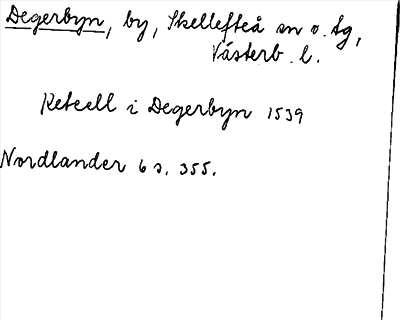 Degerbyn, by, Skellefteå sn o. tg,
Västerb. l.
Keteell i Degerbyn 1539
Nordlander 6 s. 355.